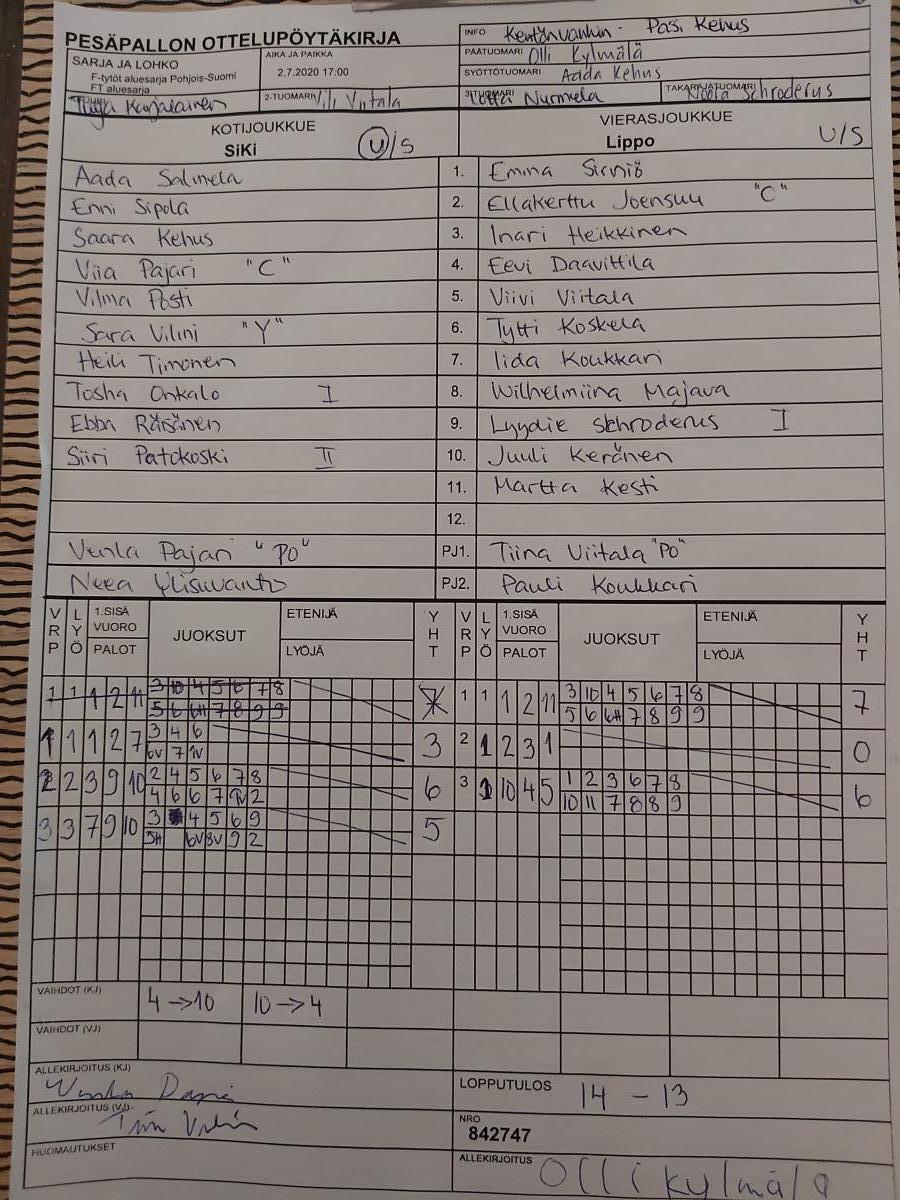 PESÄPALLON OTTELUPÖYTÄKIRJA
INFO Kentänvanhin - Pasi Kehus
PÄÄTUOMARI Olli Kylmälä
SARJA JA LOHKO
F-tytöt aluesarja Pohjois-Suomi
FT aluesarja
AIKA JA PAIKKA
2.7.2020 17:00
SYÖTTÖTUOMARI Aada Kehus
2-TUOMARI Vili Viitala
3-TUOMARI Lotta Nurmela
TAKARAJATUOMARI Noora Schroderus
KOTIJOUKKUE
SiKi U/S
VIERASJOUKKUE
Lippo U/S
Aada Salmela 1. Emma Sirniö
Enni Sipola 2. Ellakerttu Joensuu "C"
Saara Kehus 3. Inari Heikkinen
Viia Pajari "C" 4. Eevi Daavittila
Vilma Posti 5. Viivi Viitala
Sara Vilmi "Y" 6. Tytti Koskela
Heili Timonen 7. Iida Koukkari
Tosha Onkalo I 8. Wilhelmiina Majava
Ebba Räisänen 9. Lyydie Schroderus I
Siiri Patokoski II 10. Juuli Keränen
11. Martta Kesti
12.
Venla Pajari "PO" PJ1. Tiina Viitala "PO"
Neea Ylisuvanto PJ2. Pauli Koukkari
VRP LYÖ 1.SISÄ VUORO PALOT JUOKSUT ETENIJÄ LYÖJÄ YHT
VRP LYÖ 1.SISÄ VUORO PALOT JUOKSUT ETENIJÄ LYÖJÄ YHT
1 1 1 2 11 3 10 4 5 6 7 8 7
5 6 6H 7 8 9 9
1 1 1 2 11 3 10 4 5 6 7 8 7
5 6 6H 7 8 9 9
1 1 1 2 7 3 4 6 3
6V 7 1V
2 1 2 3 1 0
2 2 3 9 10 2 4 5 6 7 8 6
4 6 6 7 9V 2
3 1 10 4 5 1 2 3 6 7 8 6
10 11 7 8 8 9
3 3 7 9 10 3 4 5 6 9 5
5H 6V 8V 9 2
VAIHDOT (KJ) 4→10 10→4
VAIHDOT (VJ)
ALLEKIRJOITUS (KJ)
LOPPUTULOS 14 - 13
ALLEKIRJOITUS (VJ)
NRO
842747
HUOMAUTUKSET
ALLEKIRJOITUS Olli kylmälä